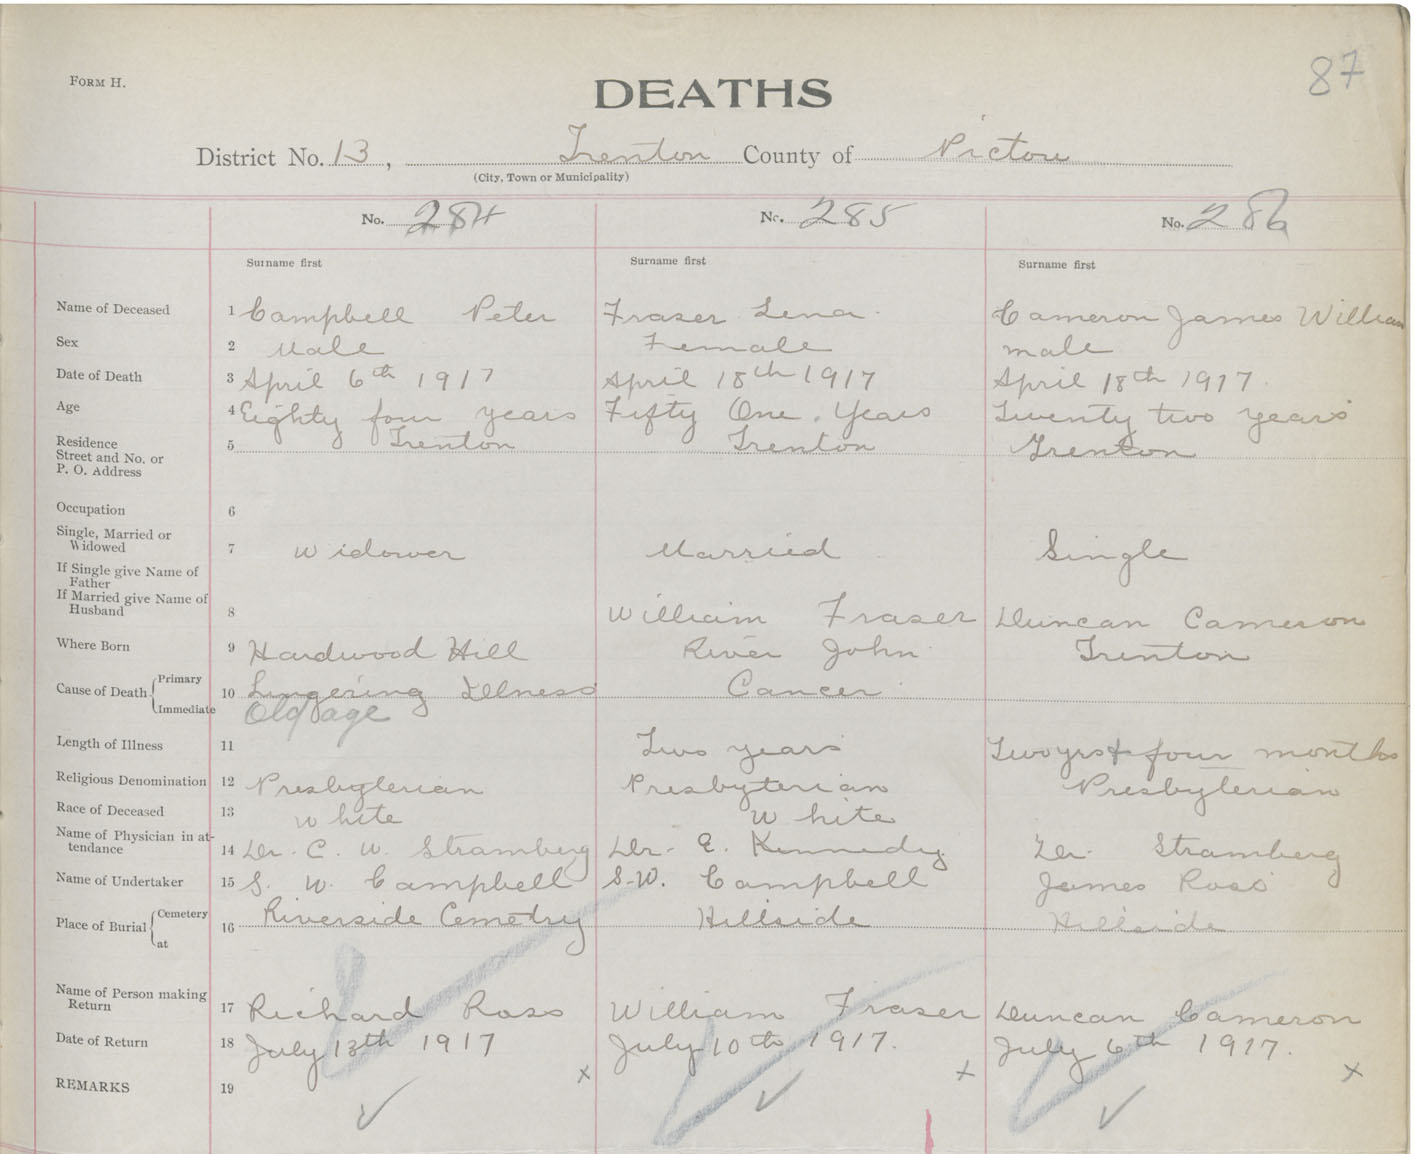 87
FORM H.
DEATHS
District No. 13, Trenton County of Pictou
(City, Town or Municipality)
No. 284 No. 285 No. 286
Surname first Surname first Surname first
Name of Deceased 1 Campbell Peter Fraser Lena Cameron James William
Sex 2 Male Female male
Date of Death 3 April 6th 1917 April 18th 1917 April 18th 1917.
Age 4 Eighty four years Fifty One. Years Twenty two years
Residence
Street and No. or
P. O. Address 5 Trenton Trenton Trenton
Occupation 6
Single, Married or
Widowed 7 Widower Married Single
If Single give Name of
Father
If Married give Name of
Husband 8 William Fraser Duncan Cameron
Where Born 9 Hardwood Hill River John Trenton
Cause of Death { Primary
Immediate 10 Lingering Illness Cancer
Old age
Length of Illness 11 Two years Two yrs & four months
Religious Denomination 12 Presbyterian Presbyterian Presbyterian
Race of Deceased 13 White White
Name of Physician in at-
tendance 14 Dr. C. W. Stramberg Dr. E. Kennedy Dr. Stramberg
Name of Undertaker 15 S. W. Campbell S.W. Campbell James Ross
Place of Burial { Cemetery
at 16 Riverside Cemetry Hillside Hillside
Name of Person making
Return 17 Richard Ross William Fraser Duncan Cameron
Date of Return 18 July 13th 1917 July 10th 1917. July 6th 1917.
REMARKS 19